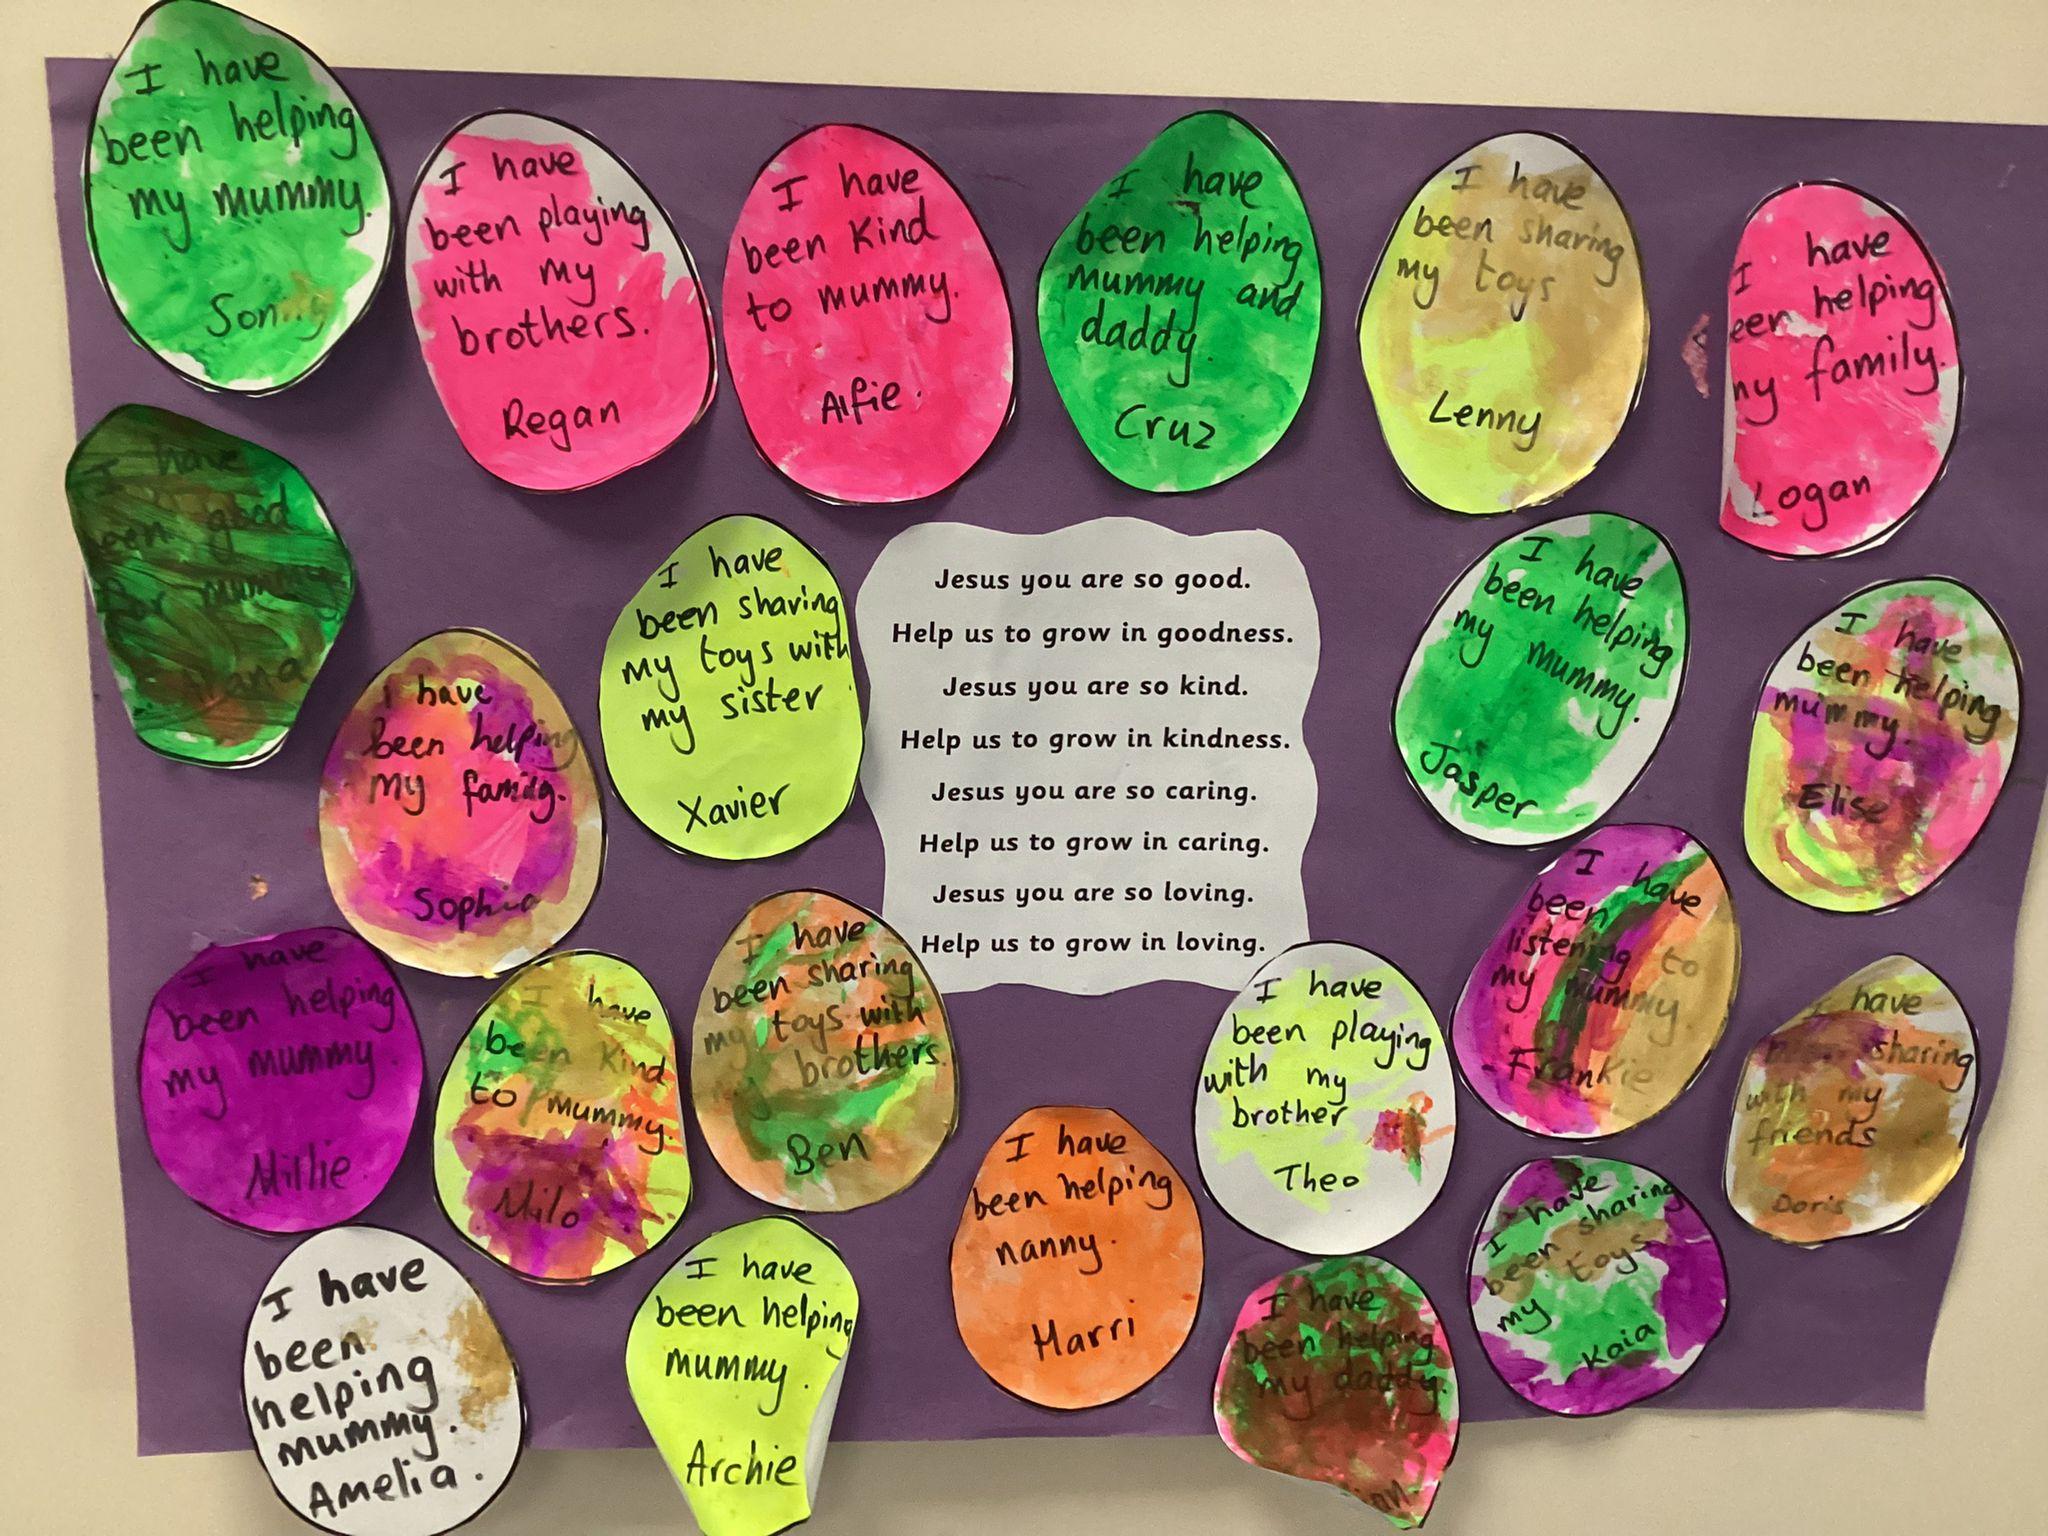 I have
been helping
my mummy.
Sonny
I have
been playing
with my
brothers.
Regan
I have
been kind
to mummy.
Alfie.
I have
been helping
mummy and
daddy.
Cruz
I have
been sharing
my toys
Lenny
I have
een helping
my family.
Logan
I have
een good
for mummy
I have
been sharing
my toys with
my sister.
Xavier
Jesus you are so good.
Help us to grow in goodness.
Jesus you are so kind.
Help us to grow in kindness.
Jesus you are so caring.
Help us to grow in caring.
Jesus you are so loving.
Help us to grow in loving.
I have
been helping
my mummy.
Jasper
I have
been helping
mummy.
Elise
I have
been helping
my family.
Sophia
I have
been helping
my mummy.
Millie.
I have
been kind
to mummy.
Milo
I have
been sharing
my toys with
my brothers.
Ben
I have
been playing
with my
brother
Theo
I have
been
listening to
my mummy
Frankie
I have
sharing
with my
friends
Doris
I have
been helping
mummy.
Amelia.
I have
been helping
mummy.
Archie
I have
been helping
nanny.
Harri
I have
been helping
my daddy.
I have
been sharing
my toys
Kaia